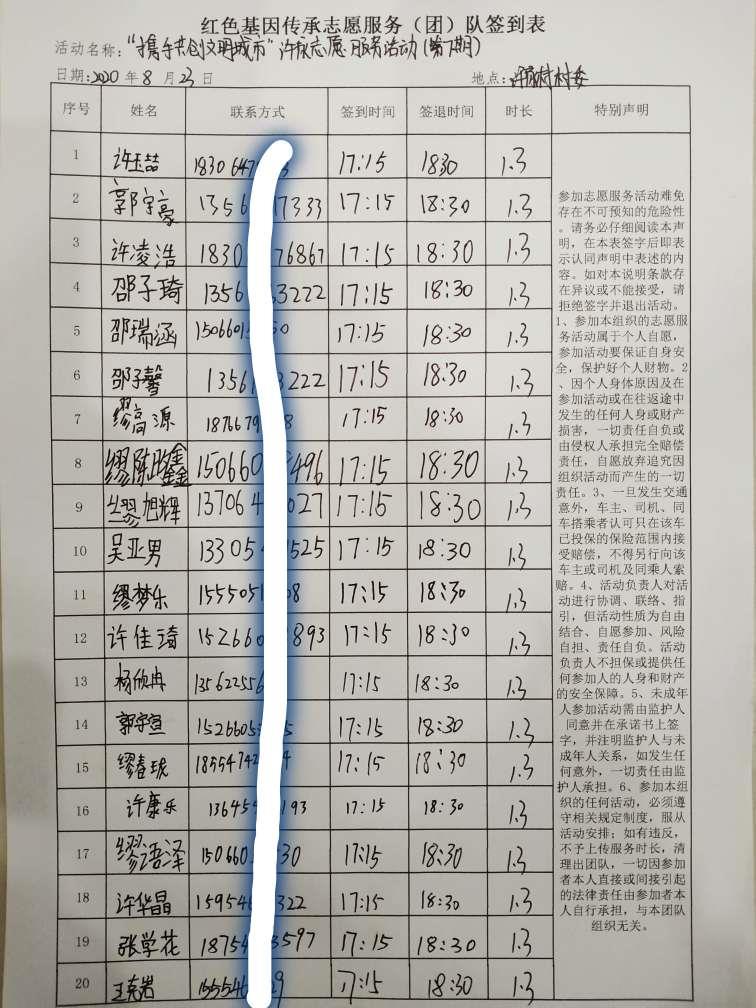 红色基因传承志愿服务（团）队签到表
活动名称：“携手共创文明城市”许家志愿服务活动（第7期）
日期：2020 年 8 月 23 日 地点：许家村村委
序号 姓名 联系方式 签到时间 签退时间 时长 特别声明
1 许玉喆 1830647 17:15 1830 1.3
2 郭宇豪 1356 7333 17:15 18:30 1.3
3 许凌浩 1830 76867 17:15 18:30 1.3
4 邵子琦 1356 3222 17:15 18:30 1.3
5 邵瑞涵 1506601 0 17:15 18:30 1.3
6 邵子馨 1356 3222 17:15 18:30 1.3
7 缪高源 1876679 8 17:15 18:30 1.3
8 缪陈昀鑫 150660 496 17:15 18:30 1.3
9 缪旭辉 137064 027 17:15 18:30 1.3
10 吴亚男 13305 1525 17:15 18:30 1.3
11 缪梦乐 155505 08 17:15 18:30 1.3
12 许佳琦 152660 893 17:15 18:30 1.3
13 杨欣冉 135622556 17:15 18:30 1.3
14 郭宇宣 1526605 5 17:15 18:30 1.3
15 缪春珑 18554742 4 17:15 18:30 1.3
16 许康乐 136455 193 17:15 18:30 1.3
17 缪语泽 150660 30 17:15 18:30 1.3
18 许华晶 159546 322 17:15 18:30 1.3
19 张学花 18754 3597 17:15 18:30 1.3
20 王克岩 155546 9 17:15 18:30 1.3
参加志愿服务活动难免
存在不可预知的危险性
。请务必仔细阅读本声
明，在本表签字后即表
示认同声明中表述的内
容。如对本说明条款存
在异议或不能接受，请
拒绝签字并退出活动。
1、参加本组织的志愿服
务活动属于个人自愿，
参加活动要保证自身安
全，保护好个人财物。2
、因个人身体原因及在
参加活动或在往返途中
发生的任何人身或财产
损害，一切责任自负或
由侵权人承担完全赔偿
责任，自愿放弃追究因
组织活动而产生的一切
责任。3、一旦发生交通
意外，车主、司机、同
车搭乘者认可只在该车
已投保的保险范围内接
受赔偿，不得另行向该
车主或司机及同乘人索
赔。4、活动负责人对活
动进行协调、联络、指
引，但活动性质为自由
结合、自愿参加、风险
自担、责任自负。活动
负责人不担保或提供任
何参加人的人身和财产
的安全保障。5、未成年
人参加活动需由监护人
同意并在承诺书上签
字，并注明监护人与未
成年人关系，如发生任
何意外，一切责任由监
护人承担。6、参加本组
织的任何活动，必须遵
守相关规定制度，服从
活动安排；如有违反，
不予上传服务时长，清
理出团队，一切因参加
者本人直接或间接引起
的法律责任由参加者本
人自行承担，与本团队
组织无关。